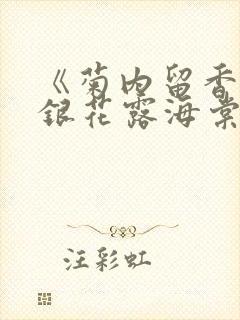 《菊内留香
銀花露海棠
汪彩虹